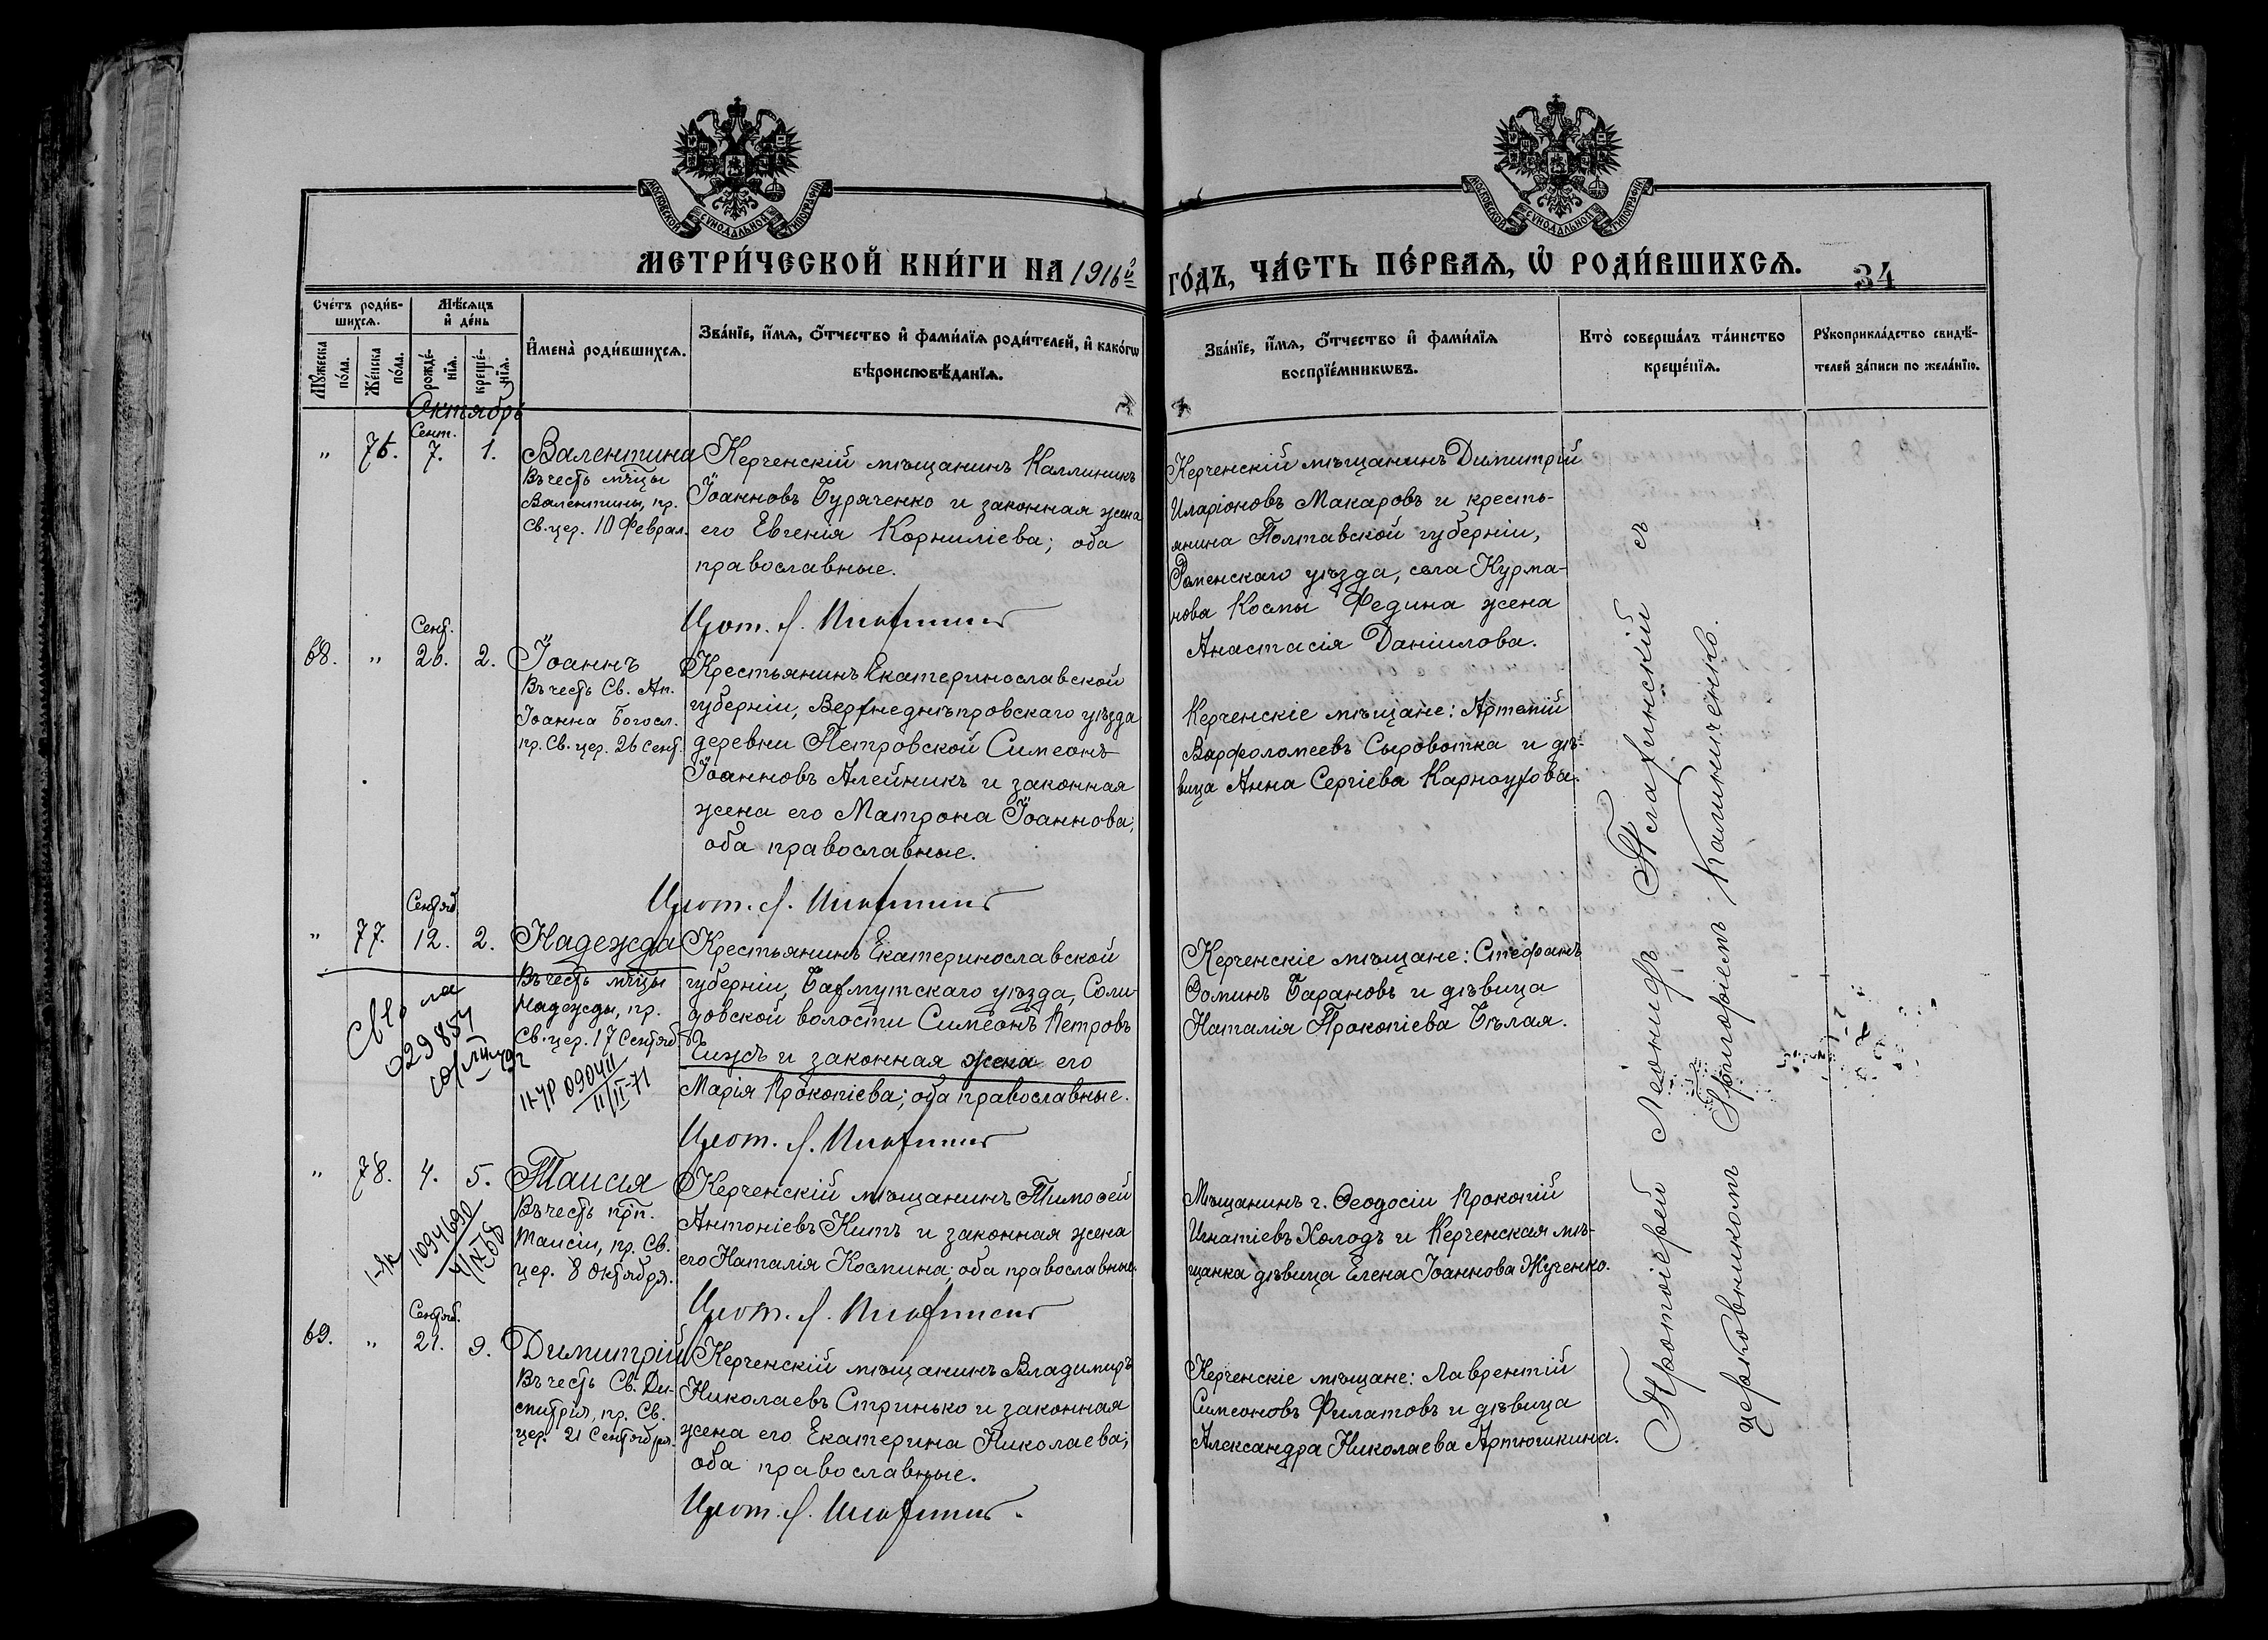 МОСКОВСКОЙ СѴНОДАЛЬНОЙ ТИПОГРАФІИ
МОСКОВСКОЙ СѴНОДАЛЬНОЙ ТИПОГРАФІИ
МЕТРИ́ЧЕСКОЙ КНИ́ГИ НА 1916й
ГО́ДЪ, ЧА́СТЬ ПЕ́РВАЯ, Ѡ РОДИ́ВШИХСЯ.
34
Сче́тъ роди́в-
шихся.
Мѣ́сяцъ
и҆ де́нь
Мꙋ́жеска
по́ла.
Же́нска
по́ла.
рожде́-
нїя.
креще́-
нїя.
И҆мена̀ роди́вшихся.
Зва́нїе, и҆́мя, ѻ҆́тчество и҆ фами́лїя роди́телей, и҆ како́гѡ
вѣроисповѣ́данїя.
Зва́нїе, и҆́мя, ѻ҆́тчество и҆ фами́лїя
воспрїе́мникѡвъ.
Кто̀ соверша́лъ та́инство
креще́нїя.
Рꙋкоприкла́дство свидѣ́-
телей за́писи по жела́нїю.
Октябрь
Сент.
" 76. 7. 1. Валентина
Въ честь мч҃ицы
Валентины, пр.
Св. цер. 10 Феврал.
Керченскій мѣщанинъ Каллиникъ
Іоанновъ Буряченко и законная жена
его Евгенія Корниліева; оба
православные.
Прот. Л.
Керченскій мѣщанинъ Димитрій
Иларіоновъ Макаровъ и кресть-
янина Полтавской губерніи,
Роменскаго уѣзда, села Курма-
нова Космы Федина жена
Анастасія Даніилова.
Сент.
68. " 26. 2. Іоаннъ
Въ честь Св. Ап.
Іоанна Богосл.
пр. Св. цер. 26 Сент.
Крестьянинъ Екатеринославской
губерніи, Верхнеднѣпровскаго уѣзда
деревни Петровской Симеонъ
Іоанновъ Алейникъ и законная
жена его Матрона Іоаннова;
оба православные.
Прот. Л.
Керченскіе мѣщане: Артемій
Варфоломеевъ Сыровотка и дѣ-
вица Анна Сергіева Карноухова.
Сентяб.
" 77. 12. 2. Надежда
Въ честь мч҃ицы
Надежды, пр.
Св. цер. 17 Сентяб.
029854
II-УР 090411
11/II-71
Крестьянинъ Екатеринославской
губерніи, Бахмутскаго уѣзда, Соли-
довской волости Симеонъ Петровъ
и законная жена его
Марія Прокопіева; оба православные.
Прот. Л.
Керченскіе мѣщане: Стефанъ
Ѳоминъ Барановъ и дѣвица
Наталія Прокопіева Бѣлая.
" 78. 4. 5. Таисія
Въ честь прп.
Таисіи, пр. Св.
цер. 8 Октября.
1094690
Керченскій мѣщанинъ Тимоѳей
Антоніевъ Китъ и законная жена
его Наталія Космина; оба православные.
Прот. Л.
Мѣщанинъ г. Ѳеодосіи Прокопій
Игнатіевъ Холодъ и Керченская мѣ-
щанка дѣвица Елена Іоаннова Жученко.
Сентяб.
69. " 21. 9. Димитрій
Въ честь Св. Ди-
митрія, пр. Св.
цер. 21 Сентября.
Керченскій мѣщанинъ Владимиръ
Николаевъ Стринько и законная
жена его Екатерина Николаева;
оба православные.
Прот. Л.
Керченскіе мѣщане: Лаврентій
Симеоновъ Филатовъ и дѣвица
Александра Николаева Артюшкина.
Протоіерей Леонидъ съ
церковникомъ Григоріемъ Калиниченко.